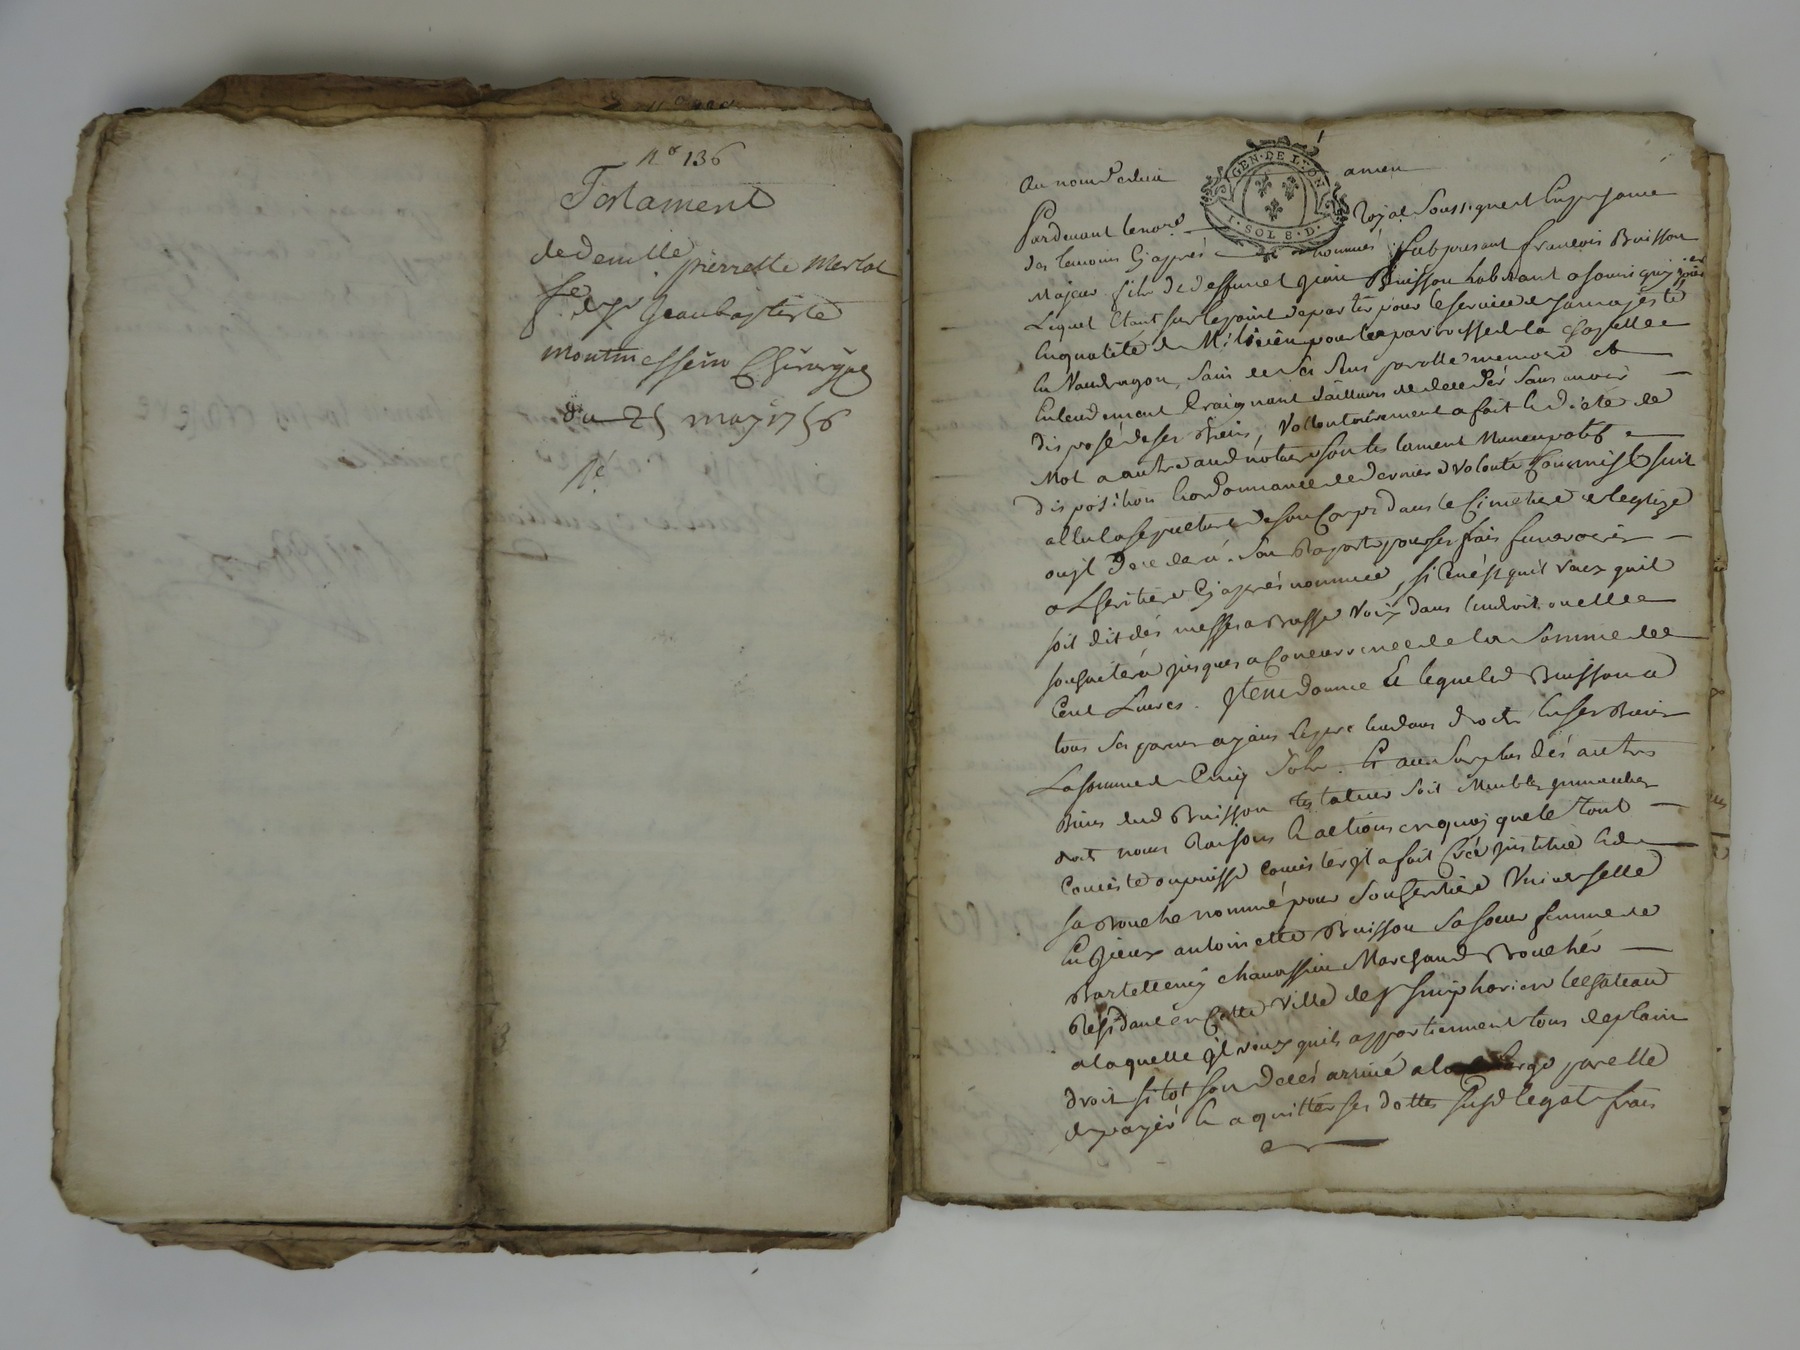 n° 136
Testament
de demlle pierrette Merlat
fe de sr Jean baptiste
montmessein Chirurgien
du 25 may 1756
né
Au nom de dieu amen
GEN. DE LYON
1. SOL 8. D.
Pardevant le nore Royal Soussigné et En presance
des temoins Cy après nommés fut presant françois Buisson
Majeur fils de deffunt Buisson habitant a
Lequel Etant sur le point de partir pour le service de sa majesté
En qualité de Milicien pour la parroisse de la Chapelle
En Vaudragon, Sain de ses sens parolle memoire et
Entendement Craignant d'ailleurs de decedér sans avoir
disposé de ses Biens, Vollontairement a fait et dicté de
Mot a autre aud notaire son testament Nuncupatif
disposition Et ordonnance de derniere Volonté Comme s'ensuit
a Elu la sepulture de son Corps dans le Cimetiere de leglize
ou jl decedera. Son Raporte pour ses frais funeraires
a L'heritiere Cy après nommée, si ce n'est qu'il veux quil
soit dit des messes a Basse Voix dans l'endroit ou elle
souhaitera jusques a Concurrance de la Somme de
Cent Livres. Jtem donne Et legue led Buisson a
tous ses parens ayans Espre tendans droit En ses Biens
La somme de Cinq Sols. Et au Surplus dés autres
Biens dud Buisson testateur soit Meubles jmmeubles
droits noms Raisons Et actions en quoy que le tout
Consiste ou puisse Consister jl a fait Créé jnstitué Et de
sa Bouche nommé pour Son heritiere Universelle
antoinette Buisson Sa soeur femme de
Bartellemy chavassieu Marchand Bouchér
Residant en Cette Ville de St Simphorien le Chateau
a laquelle jl veux quils appartiennent tous de plain
droit sitot son decés arrivé a la Charge par elle
de payér Et aquitter ses dettes susd legat frais